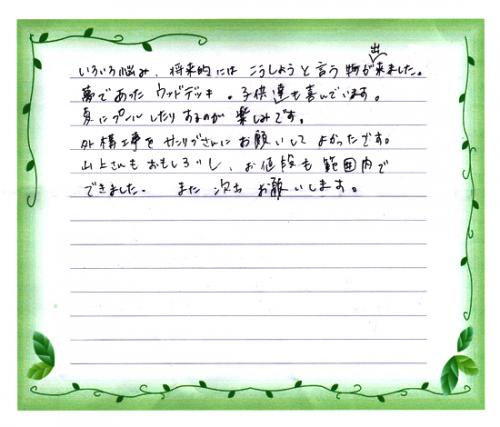 いろいろ悩み、将来的には こうしようと言う物が出来ました。
夢であった ウッドデッキ。子供達も喜んでいます。
夏にプールしたりするのが 楽しみです。
外構工事を サンリブさんに お願いして よかったです。
山上さんも おもしろいし、お値段も 範囲内で
できました。 また 次も お願いします。